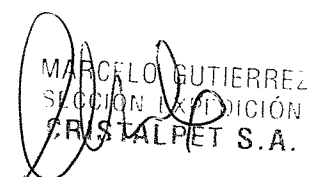 MARCELO GUTIERREZ
SECCIÓN EXPEDICIÓN
CRISTALPET S.A.